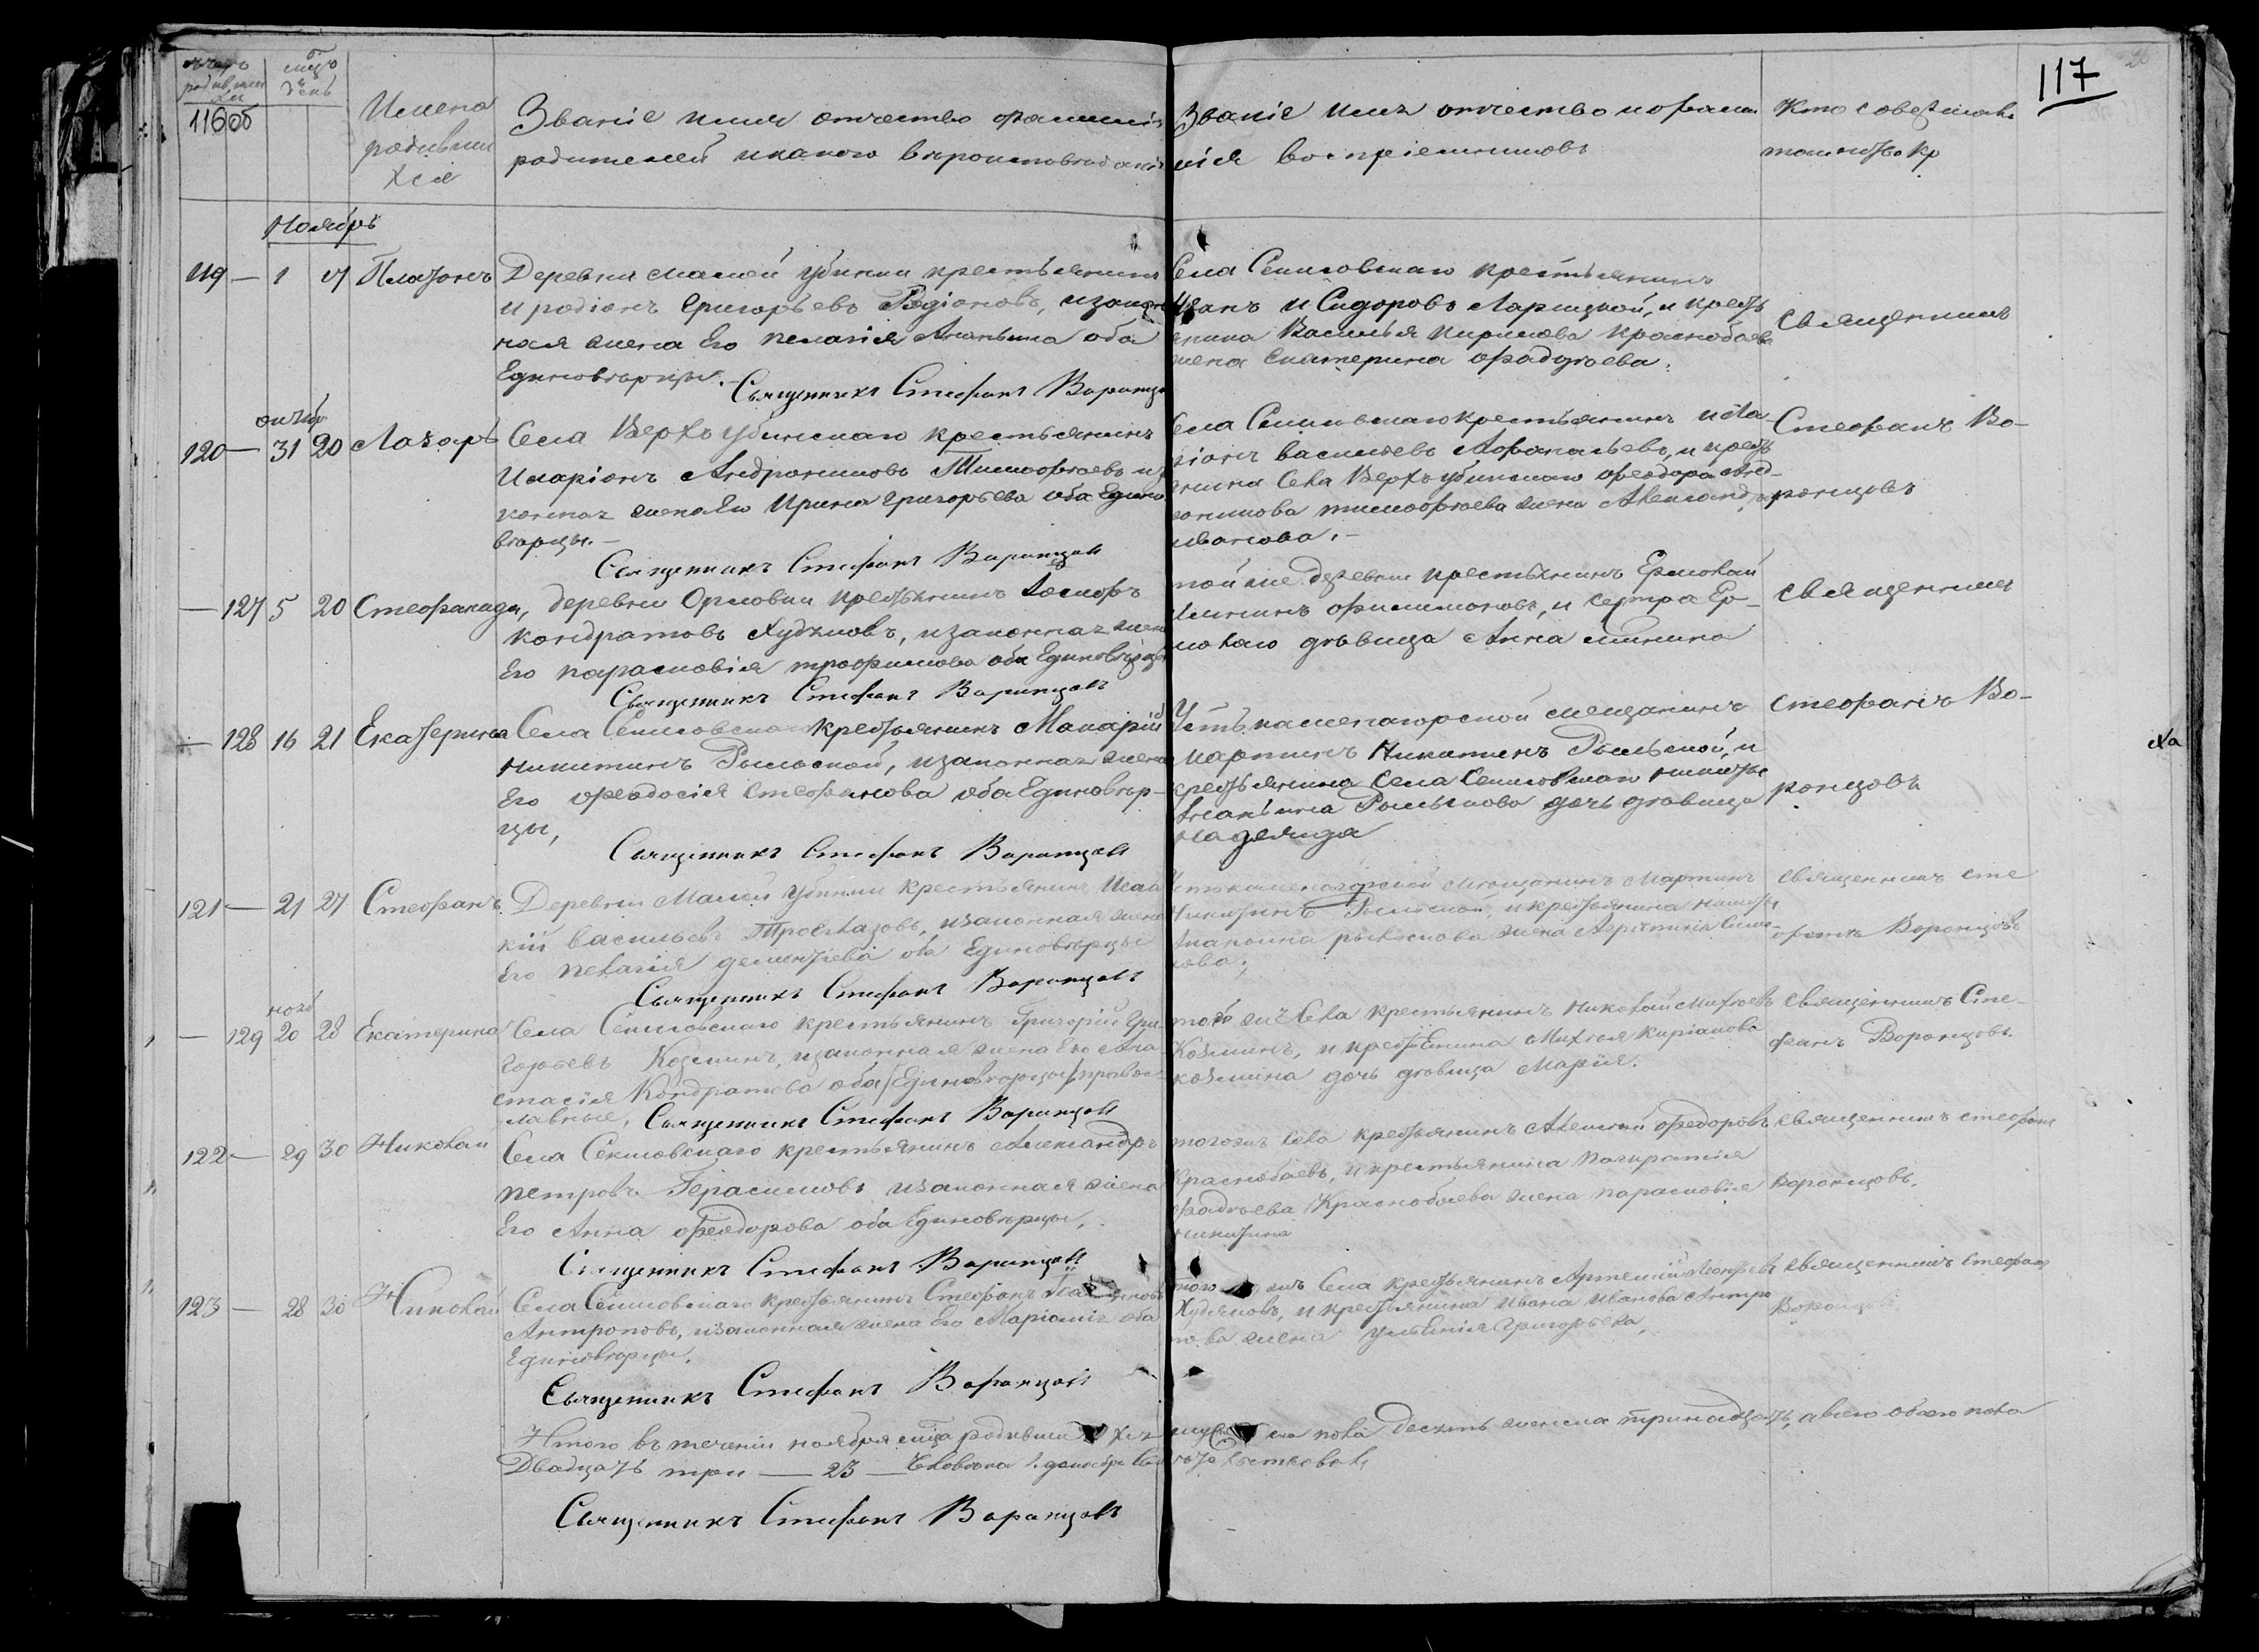 117
116об
счетъ родившихся
мцъ день
Имена
родивших
хся
Званіе имя отчество фамилія
родителей и какого вѣроисповѣданія
Званіе имя отчество и фами
лія воспріемниковъ
Кто совершалъ
таинство кр
Ноябрь
119 — 1 17 Платонъ
Деревни малой убинки крестьянинъ
Иродіонъ Григорьевъ Родіоновъ, и закон
ная жена Его пелагія Ананьина оба
Единовѣрцы.
Священникъ Стефанъ Воронцо
Села Секисовскаго крестьянинъ
Иванъ Сидоровъ Ларицкой, и кресть
янина Василья Кирилова Краснобаева
жена Екатерина Фадѣева.
Священникъ
октяб
120 — 31 20 Лазарь
Села Верхъ убинскаго крестьянинъ
Иларіонъ Андрониковъ Тимофѣевъ и за
конная жена Его Ирина Григорьева оба Едино
вѣрцы. —
Священникъ Стефанъ Воронцовъ
Села Секисовскаго крестьянинъ Ила
ріонъ васильевъ Афонасьевъ, и кресть
янина Села Верхъ убинскаго Феодора Анд-
роникова тимофѣева жена Александра
иванова. —
Стефанъ Во-
ронцовъ
— 127 5 20 Стефанида,
деревни Орловки крестьянинъ Іосифъ
кондратовъ Худяковъ, и законная жена
Его парасковія трофимова оба Единовѣрцы
Священникъ Стефанъ Воронцовъ
той же деревни крестьянинъ Ермолай
Мининъ филимоновъ, и сестра Ер-
молаю дѣвица Анна минина
священникъ
— 128 16 21 Екатерина
Села Секисовска крестьянинъ Макарій
Никитинъ Рыльской, и законная жена
Его феодосія Стефанова оба Единовѣр-
цы,
Священникъ Стефанъ Воронцовъ
Усть каменагорской мещанинъ
мартинъ Никитинъ Рыльской, и
крестьянина Села Секисовскаго никиты
Ананьина Рыльскова дочь дѣвица
Надежда
Стефанъ Во-
ронцовъ
121 — 21 27 Стефанъ
Деревни Малой убинки крестьянинъ Исаа
кій васильевъ Троеглазовъ, и законная жена
Его пелагія дементіева оба Единовѣрцы
Священникъ Стефанъ Воронцовъ
Устькаменогорской мѣщанинъ Мартинъ
Никитинъ Рыльской, и крестьянина никиты
Ананьина рыльскова жена Агрипина
священникъ сте
фанъ Воронцовъ
нояб
— 129 20 28 Екатерина
Села Секисовскаго крестьянинъ Григорій Гри
горьевъ Козминъ, и законная жена Его Ана
стасія Кондратова оба Единовѣрцы правос-
лавные, Священникъ Стефанъ Воронцовъ
тогожъ Села крестьянинъ Николай Михѣевъ
Козминъ, и крестьянина Михѣя Киріанова
козмина дочь дѣвица Марія.
священникъ Сте-
фанъ Воронцовъ.
122 — 29 30 Николай
Села Секисовскаго крестьянинъ Александръ
петровъ Герасимовъ и законная жена
Его Анна феодорова оба Единовѣрцы,
Священникъ Стефанъ Воронцовъ
тогожъ Села крестьянинъ Алексѣй федоровъ
Краснобаевъ, и крестьянина
фадѣева Краснобаева жена парасковія
никитина
священникъ Стефанъ
воронцовъ.
123 — 28 30 Николай
Села Секисовскаго крестьянинъ Стефанъ
Антроповъ, и законная жена Его Маріамія оба
Единовѣрцы.
Священникъ Стефанъ Воронцовъ
того жъ Села крестьянинъ Артемій
Худяковъ, и крестьянина Ивана Иванова Антро
пова жена Григорьева,
священникъ Стефанъ
Воронцовъ
Итого въ теченіи ноября мца родивши хся
Двадцать три — 23 — декабря
муж ска пола десять женска тринадцать, а всего обоего пола
Священникъ Стефанъ Воронцовъ